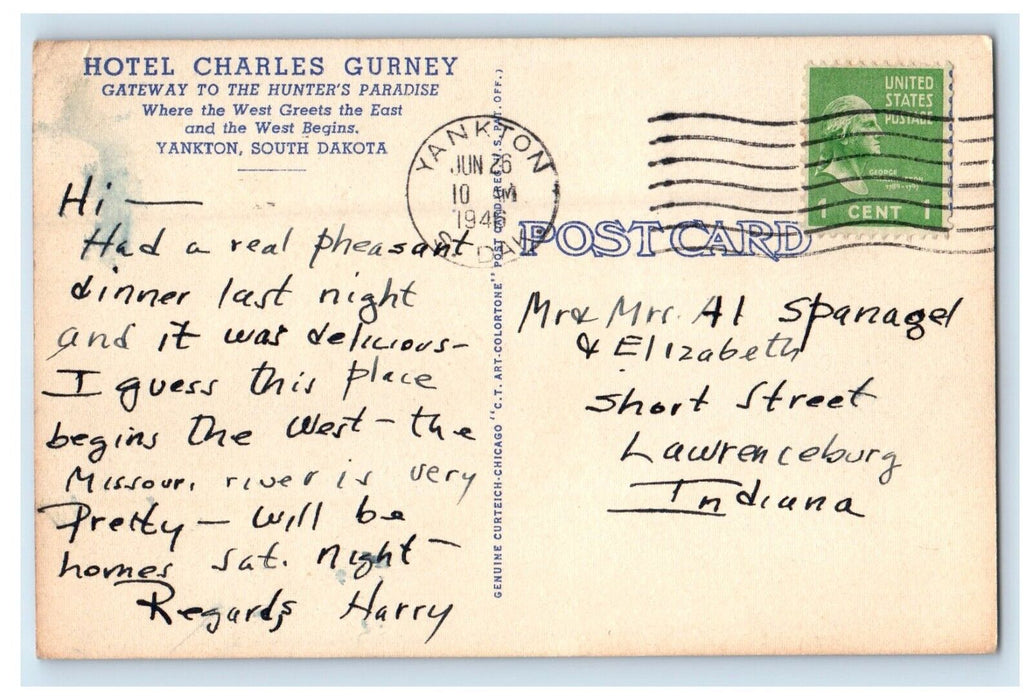 HOTEL CHARLES GURNEY
GATEWAY TO THE HUNTER'S PARADISE
Where the West Greets the East
and the West Begins.
YANKTON, SOUTH DAKOTA
Hi —
Had a real pheasant
dinner last night
and it was delicious-
I guess this place
begins the West - the
Missouri river is very
Pretty - will be
homes Sat. Night -
Regards Harry
GENUINE CURTEICH-CHICAGO "C.T. ART-COLORTONE" POST CARD (REG. U.S. PAT. OFF.)
YANKTON
JUN 26
10 AM
1946
S. DAK.
UNITED
STATES
POSTAGE
GEORGE
1 CENT 1
POST CARD
Mr & Mrs. Al Spanagel
& Elizabeth
Short Street
Lawrenceburg
Indiana